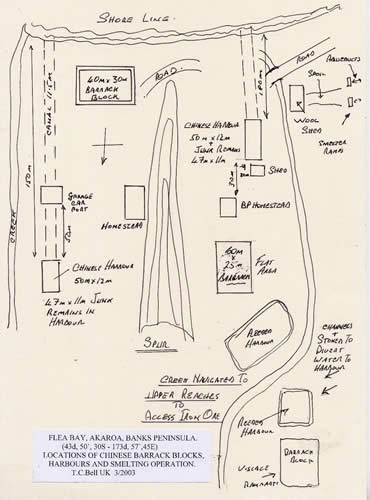 SHORE LINE.
CANAL 11.5m
150m
CREEK
40m x 30m
BARRACK
BLOCK
ROAD
180m
ROAD
SPOIL
ADUEDUCTS
WOOL
SHED
SMELTER
RAMPS
CHINESE HARBOUR
50m x 12m
+
JUNK REMAINS
47m x 11m
SHED
50m
BP HOMESTEAD
GARAGE
CAR
PORT
50m
HOMESTEAD
CHINESE HARBOUR
50m x 12m
47m x 11m JUNK
REMAINS IN
HARBOUR
60m
x
25m
BARRACK
FLAT
AREA
SPUR
REEDED
HARBOUR
CHANNELS
+
STONED TO
DIVERT
WATER TO
HARBOUR
CREEK NAVIGATED TO
UPPER REACHES
TO
ACCESS IRON ORE
REEDED
HARBOUR
BARRACK
BLOCK
VILLAGE
FLEA BAY, AKAROA, BANKS PENINSULA.
(43d, 50', 30S - 173d, 57',45E)
LOCATIONS OF CHINESE BARRACK BLOCKS,
HARBOURS AND SMELTING OPERATION.
T.C.Bell UK 3/2003